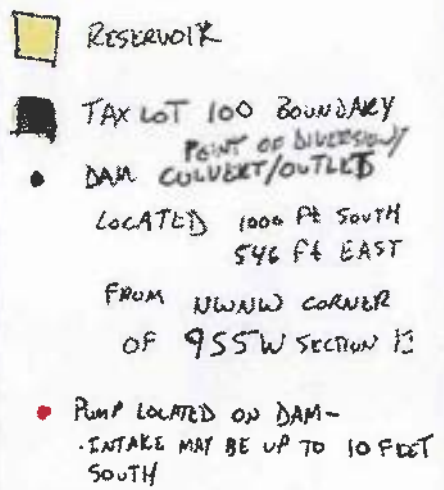 RESERVOIR
TAX LOT 100 BOUNDARY
POINT OF DIVERSION/
DAM CULVERT/OUTLET
LOCATED 1000 Ft SOUTH
546 Ft EAST
FROM NWNW CORNER
OF 9S5W SECTION
PUMP LOCATED ON DAM-
.INTAKE MAY BE UP TO 10 FEET
SOUTH